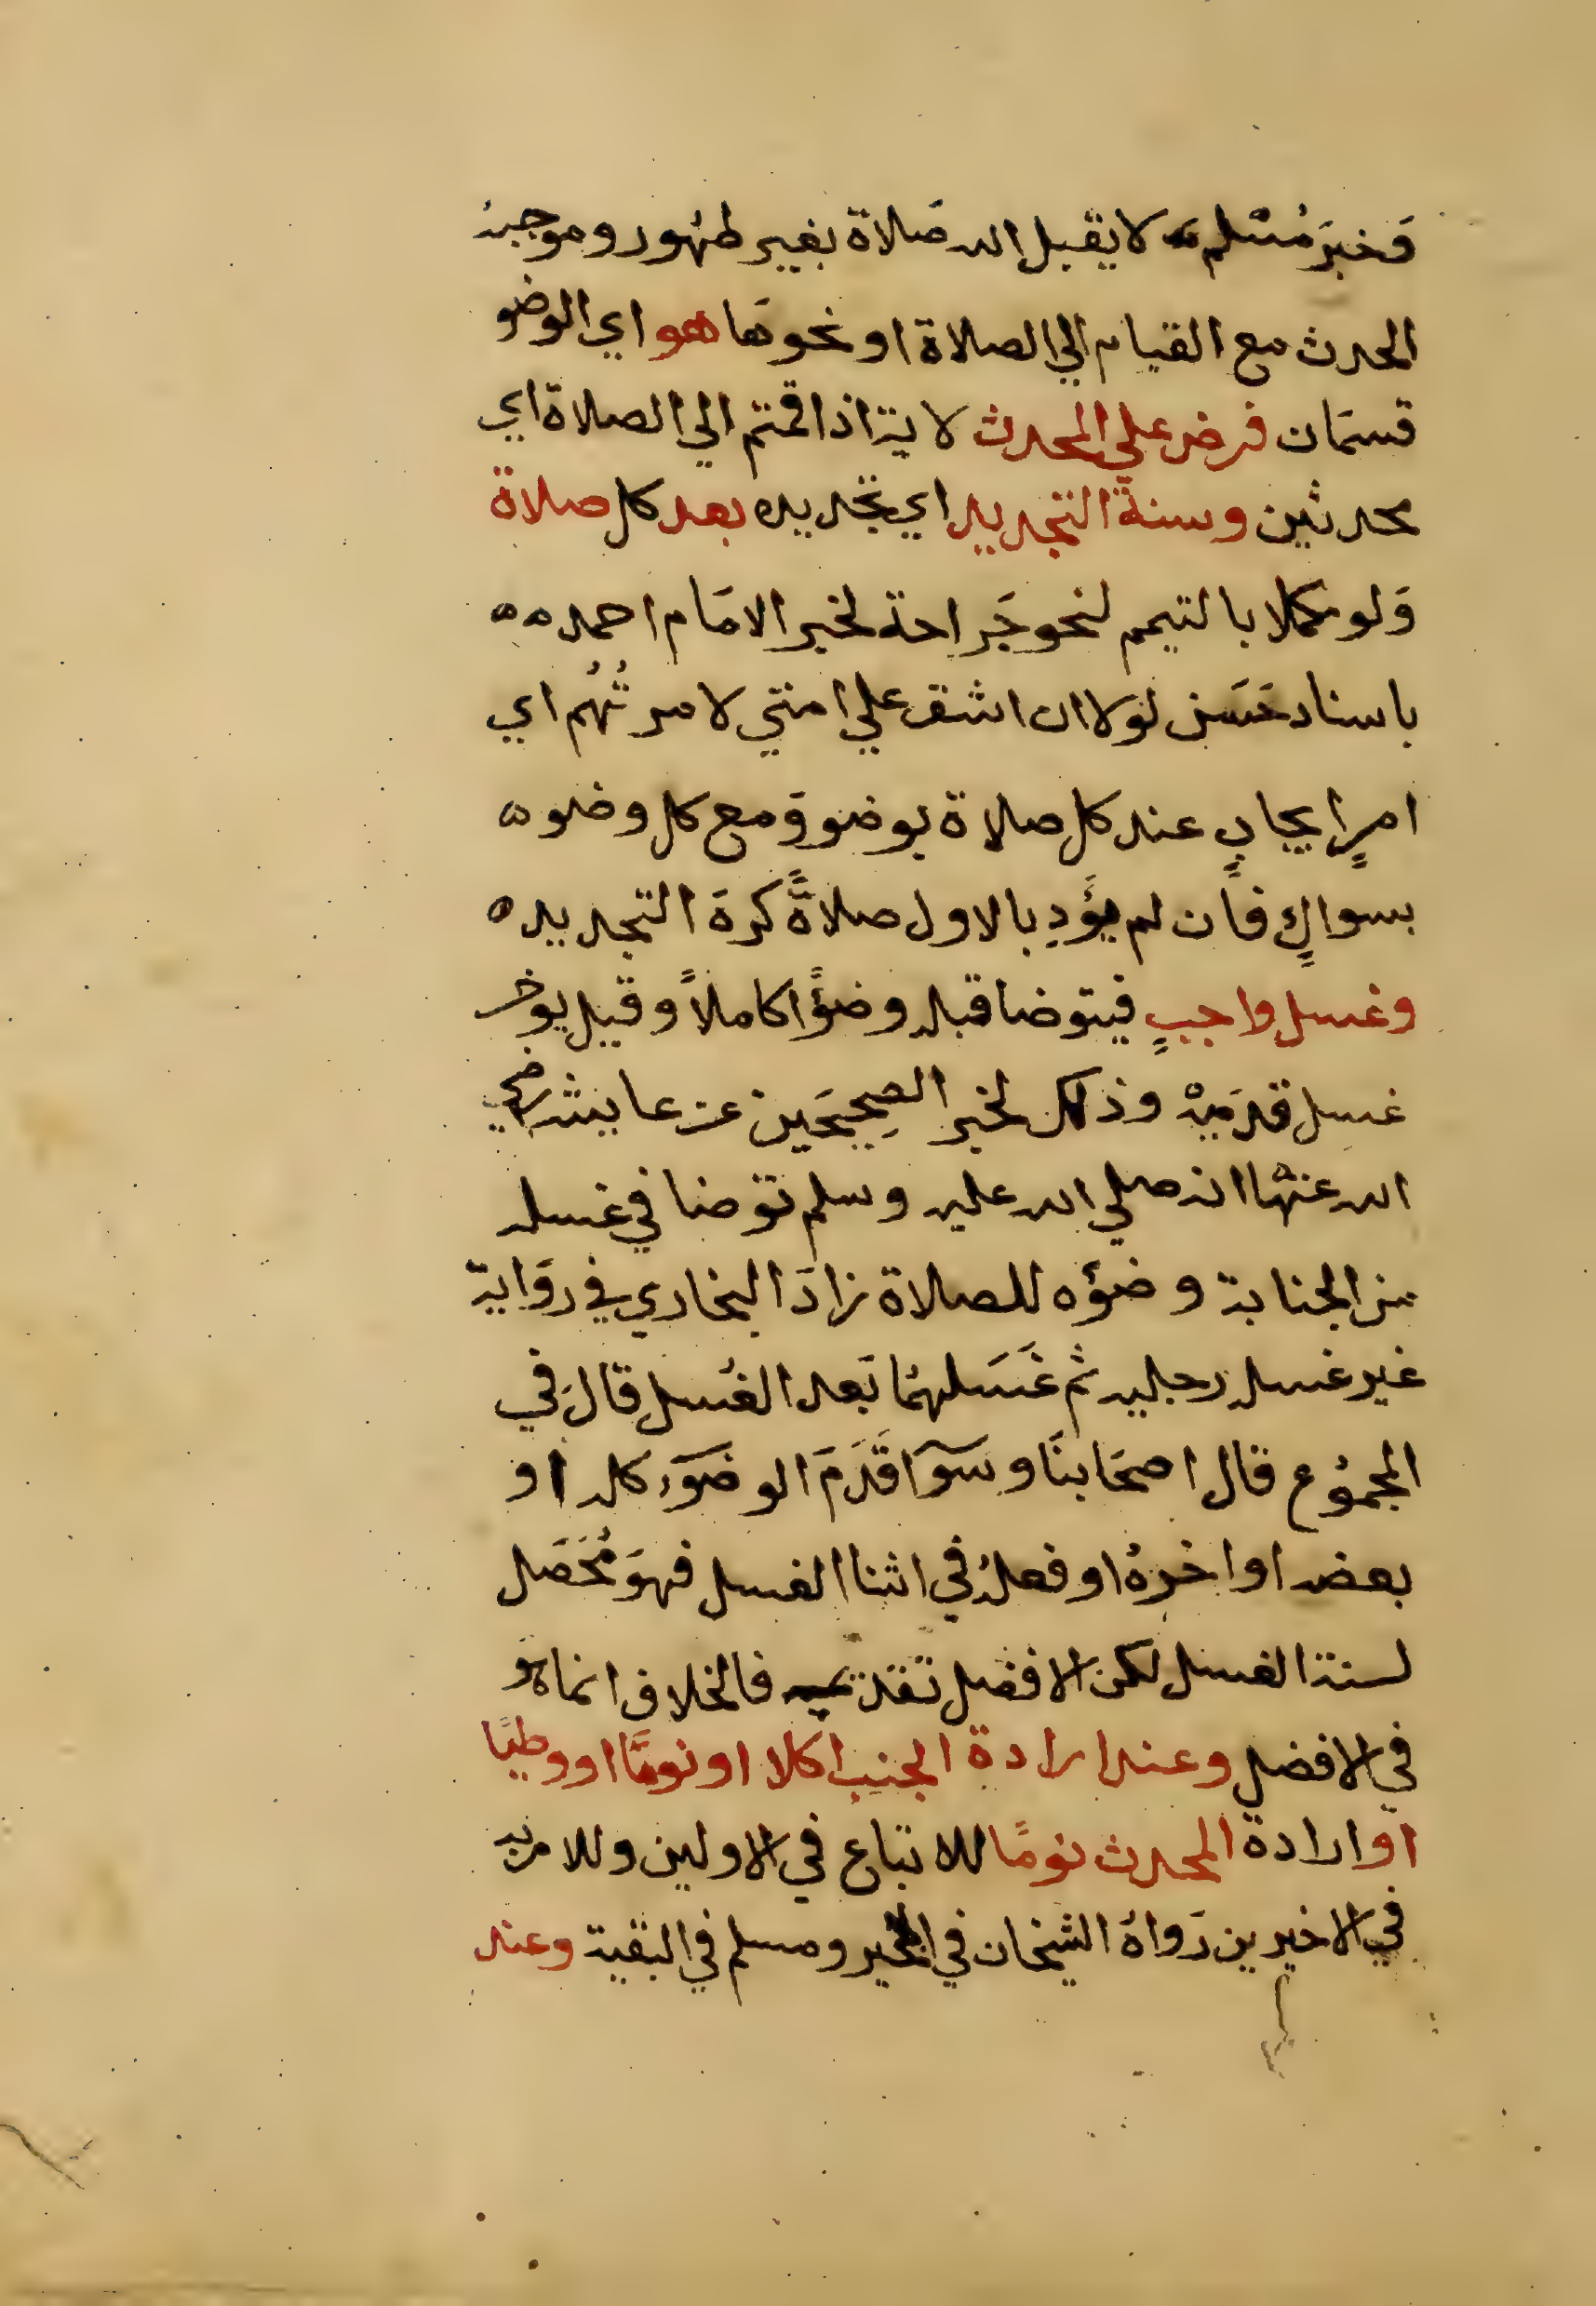 وَخبَر مُسْلم لا يقبل الله صَلاة بغير طهُور وموجبهُ
الحدث مع القيام الي الصلاة او نحوهَا هو اي الوضو
قسمَان فرض علي المحدث لاية اذا قمتم الي الصلاة اي
محدثين وسنة التجديد اي تجديده بعد كل صلاة
وَلو مكملا بالتيمم لنحو جَراحة لخبر الامَام احمد ه ه
باسناد حَسَن لولا ان اشق علي امتي لامرتُهُم اي
امرٍ ايجابٍ عند كل صلاة بوضو وَمع كل وضو ه
بسواكٍ فان لم يؤَدِ بالاول صلاةً كرهَ التجديد ه
وغسل واجبٍ فيتوضا قبله وضؤًا كاملاً وقيل يوخر
غسل قدمَيهْ وذلك لخبر الصحِيحَين عن عايشه رضي
الله عنها انه صلي الله عليه وسلم توضا في غسله
من الجنابة وضؤه للصلاة زادَ البخاري في روَاية
غير غسل رجليه ثم غَسَلهمَا بَعد الغُسل قالَ في
المجمُوع قال اصحَابنَا وسَوآ قَدَمَ الوضَوَء كله او
بعضه او اخرهُ او فعلهُ في اثنا الغسل فهوَ مُحَصَل
لسنة الغسل لكن الافضل تقديمه فالخلاف انما هو
في الافضل وعند ارادة الجنب اكلا او نومًا او وطيًا
او ارادة المحدث نومًا للاتباع في الاولين وللامر به
في الاخيرين رَواهُ الشيخان في الاخير ومسلم في البقية وعند